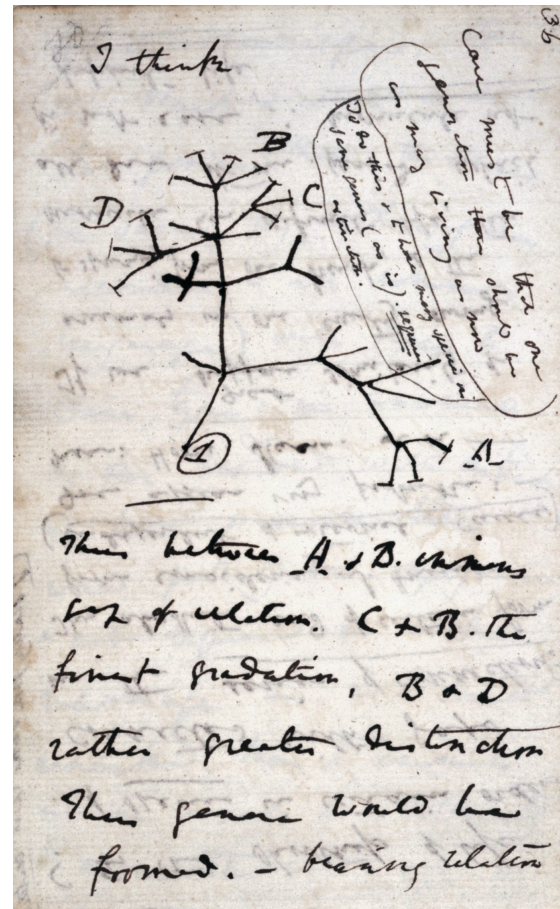 36
I think
Case must be that one
generation then should be
as many living as now
To do this & to have many species in
same genus (as is) requires
extinction.
B
C
D
A
1
Thus between A & B. immens
gap of relation. C & B. The
finest gradation, B & D
rather greater distinction
Thus genera would be
formed. – bearing relation